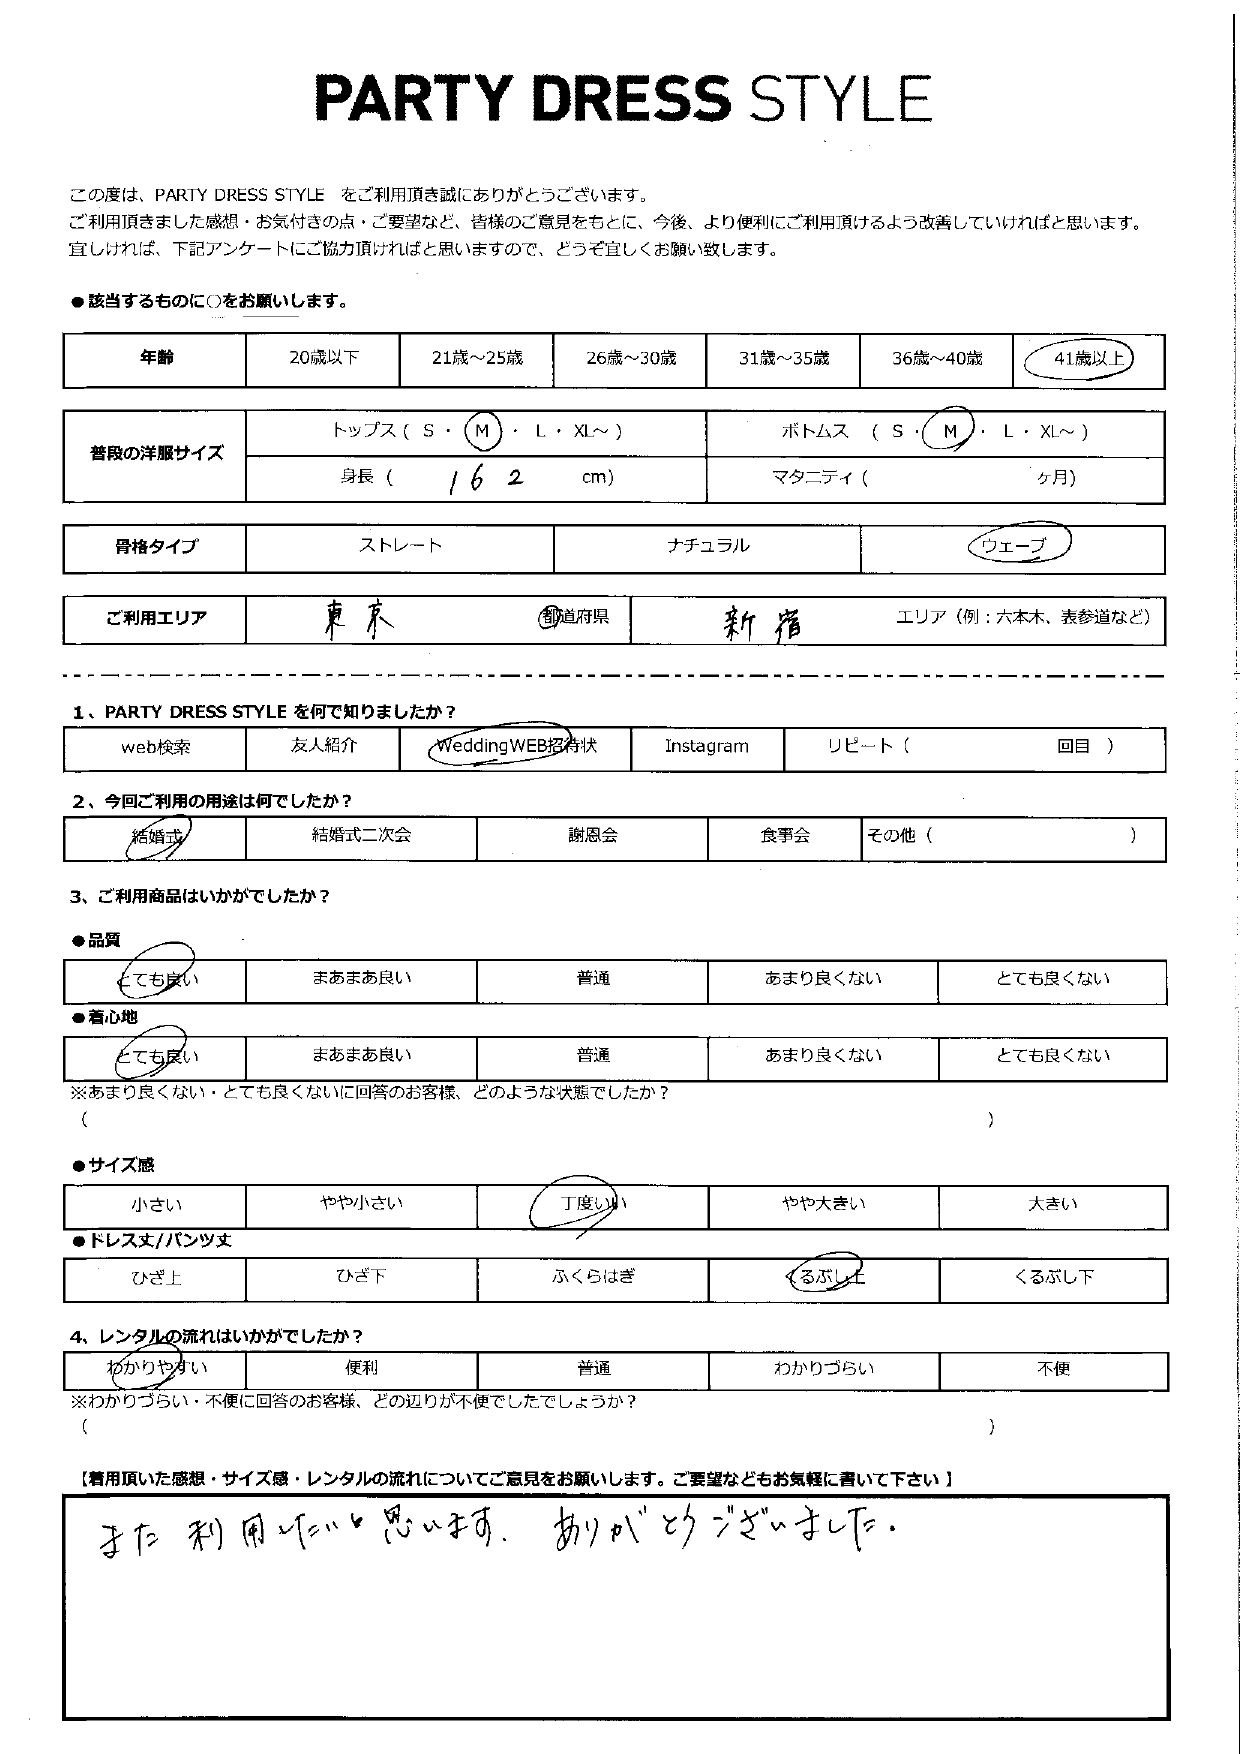 PARTY DRESS STYLE
この度は、PARTY DRESS STYLE をご利用頂き誠にありがとうございます。
ご利用頂きました感想・お気付きの点・ご要望など、皆様のご意見をもとに、今後、より便利にご利用頂けるよう改善していければと思います。
宜しければ、下記アンケートにご協力頂ければと思いますので、どうぞ宜しくお願い致します。
●該当するものに○をお願いします。
年齢 20歳以下 21歳～25歳 26歳～30歳 31歳～35歳 36歳～40歳 41歳以上
普段の洋服サイズ
トップス ( S ・ M ・ L ・ XL～ ) ボトムス ( S ・ M ・ L ・ XL～ )
身長 ( 162 cm) マタニティ ( ヶ月)
骨格タイプ ストレート ナチュラル ウェーブ
ご利用エリア 東京 都道府県 新宿 エリア（例：六本木、表参道など）
1、PARTY DRESS STYLE を何で知りましたか？
web検索 友人紹介 WeddingWEB招待状 Instagram リピート ( 回目 )
2、今回ご利用の用途は何でしたか？
結婚式 結婚式二次会 謝恩会 食事会 その他 ( )
3、ご利用商品はいかがでしたか？
●品質
とても良い まあまあ良い 普通 あまり良くない とても良くない
●着心地
とても良い まあまあ良い 普通 あまり良くない とても良くない
※あまり良くない・とても良くないに回答のお客様、どのような状態でしたか？
( )
●サイズ感
小さい やや小さい 丁度いい やや大きい 大きい
●ドレス丈/パンツ丈
ひざ上 ひざ下 ふくらはぎ くるぶし上 くるぶし下
4、レンタルの流れはいかがでしたか？
わかりやすい 便利 普通 わかりづらい 不便
※わかりづらい・不便に回答のお客様、どの辺りが不便でしたでしょうか？
( )
【着用頂いた感想・サイズ感・レンタルの流れについてご意見をお願いします。ご要望などもお気軽に書いて下さい】
また利用したいと思います. ありがとうございました.